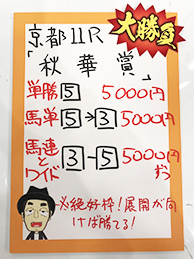 大勝負
京都11R
「秋華賞」
単勝 5 5000円
馬単 5→3 5000円
馬連とワイド 3-5 5000円ずつ
※絶好枠!展開が向
けば勝てる!